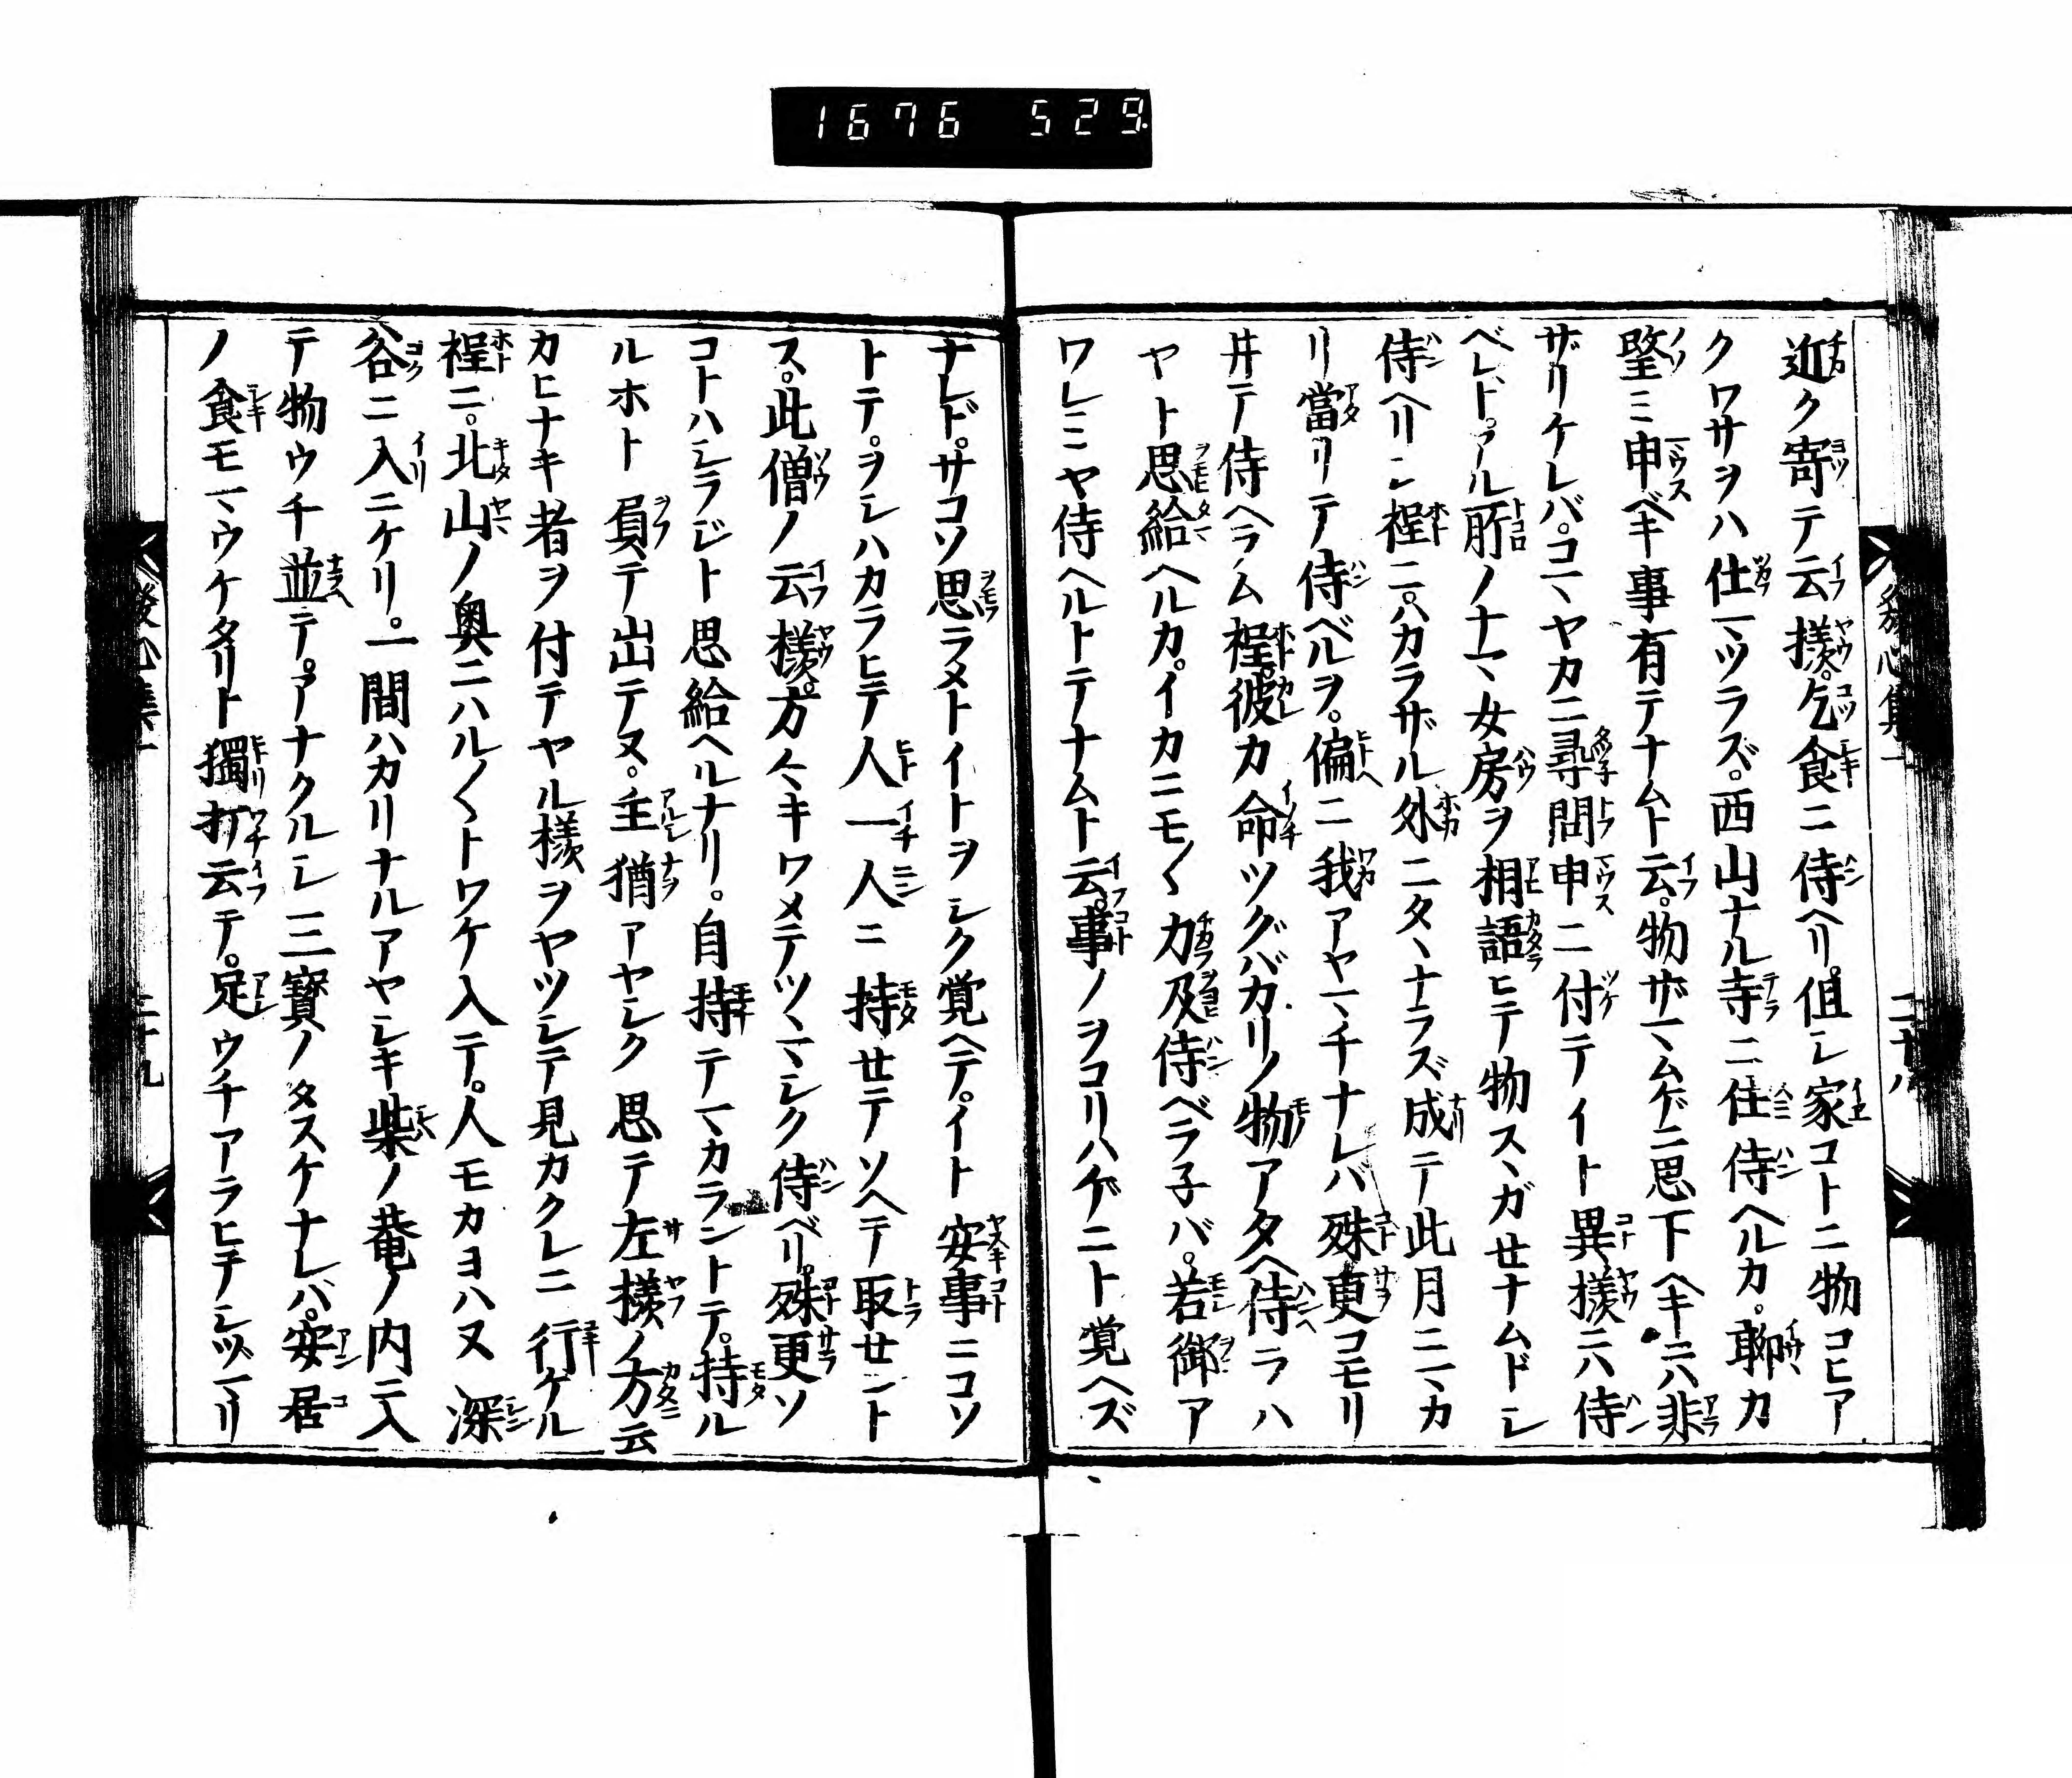 1676 529
發心集一
二十八
近ク寄テ云様。乞食ニ侍ヘリ。但シ家コトニ物コヒア
クワサヲハ仕マツラズ。西山ナル寺ニ住侍ヘルカ。聊カ
望ミ申ベキ事有テナムト云。物ザマムゲニ思下ヘキニハ非
ザリケレバ。コマヤカニ尋問。申ニ付テイト異様ニハ侍
ベレド。アル所ノナマ女房ヲ相語ヒテ物スヽガせナムドシ
侍ヘリシ程ニ。ハカラザル外ニタヽナラズ成テ此月ニマカ
リ當リテ侍ベルヲ。偏ニ我アヤマチナレバ殊更コモリ
井テ侍ヘラム程。彼カ命ツグバカリノ物アタヘ侍ラハ
ヤト思給ヘルカ。イカニモ〱力及侍ベラ子バ。若御ア
ワレミヤ侍ヘルトテナムト云。事ノヲコリハゲニト覚ヘズ
ナレド。サコソ思ラメトイトヲシク覚ヘテ。イト安事ニコソ
トテ。ヲシハカラヒテ人一人ニ持せテソヘテ取せント
ス。此僧ノ云様。方々キワメテツヽマシク侍ベリ。殊更ソ
コトハシラジト思給ヘルナリ。自持テマカラントテ。持ル
ルホト負テ出テヌ。主猶アヤシク思テ左様ノ方云
カヒナキ者ヲ付テヤル様ヲヤツシテ見カクレニ行ケル
程ニ。北山ノ奥ニハル〱トワケ入テ。人モカヨハヌ深
谷ニ入ニケリ。一間ハカリナルアヤシキ柴ノ菴ノ内ニ入
テ物ウチ並テ。アナクルシ三寳ノタスケナレバ。安居
ノ食モマウケタリト獨打云テ。足ウチアラヒテシツマリ
發心集一
二十九